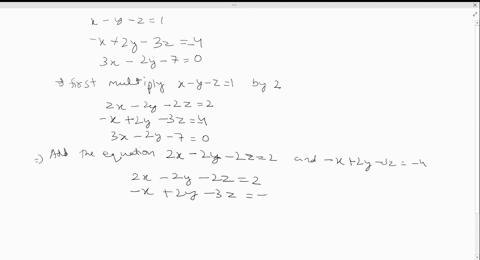 x - y - z = 1
-x + 2y - 3z = -4
3x - 2y - 7 = 0
⇒ first multiply x - y - z = 1 by 2
2x - 2y - 2z = 2
-x + 2y - 3z = -4
3x - 2y - 7 = 0
⇒ Add the equation 2x - 2y - 2z = 2 and -x + 2y - 3z = -4
2x - 2y - 2z = 2
-x + 2y - 3z = -